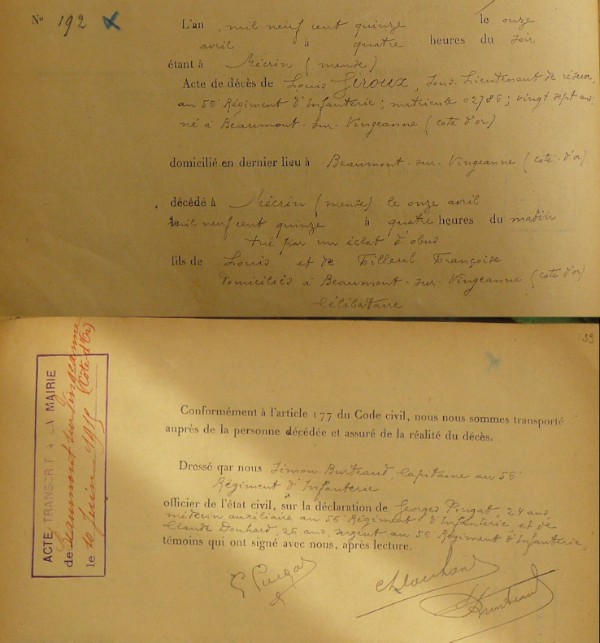 No 192
L'an mil neuf cent quinze le onze
avril à quatre heures du soir
étant à Mécrin (meuse)
Acte de décès de Louis Giroux, Sous-Lieutenant de réserve
au 56 Régiment d'Infanterie; matricule 02786; vingt sept ans
né à Beaumont-sur-Vingeanne (cote d'or)
domicilié en dernier lieu à Beaumont-sur-Vingeanne (côte-d'or)
décédé à Mécrin (meuse) le onze avril
mil neuf cent quinze à quatre heures du matin
tué par un éclat d'obus
fils de Louis et de Filleul Françoise
Domiciliés à Beaumont-sur-Vingeanne (cote d'or)
Célibataire
ACTE TRANSCRIT A LA MAIRIE
de Beaumont sur Vingeanne
(Côte d'Or)
le Juin 1915
Conformément à l'article 177 du Code civil, nous nous sommes transporté
auprès de la personne décédée et assuré de la réalité du décès.
Dressé qar nous Simon Burteaud, Capitaine au 56
Régiment d'Infanterie
officier de l'état civil, sur la déclaration de Georges Pougat, 24 ans,
médecin auxiliaire au 56 Régiment d'Infanterie, et de
Claude Douhard, 26 ans, sergent au 56 Régiment d'Infanterie,
témoins qui ont signé avec nous, après lecture.
G Pougat
Douhard
Burteaud